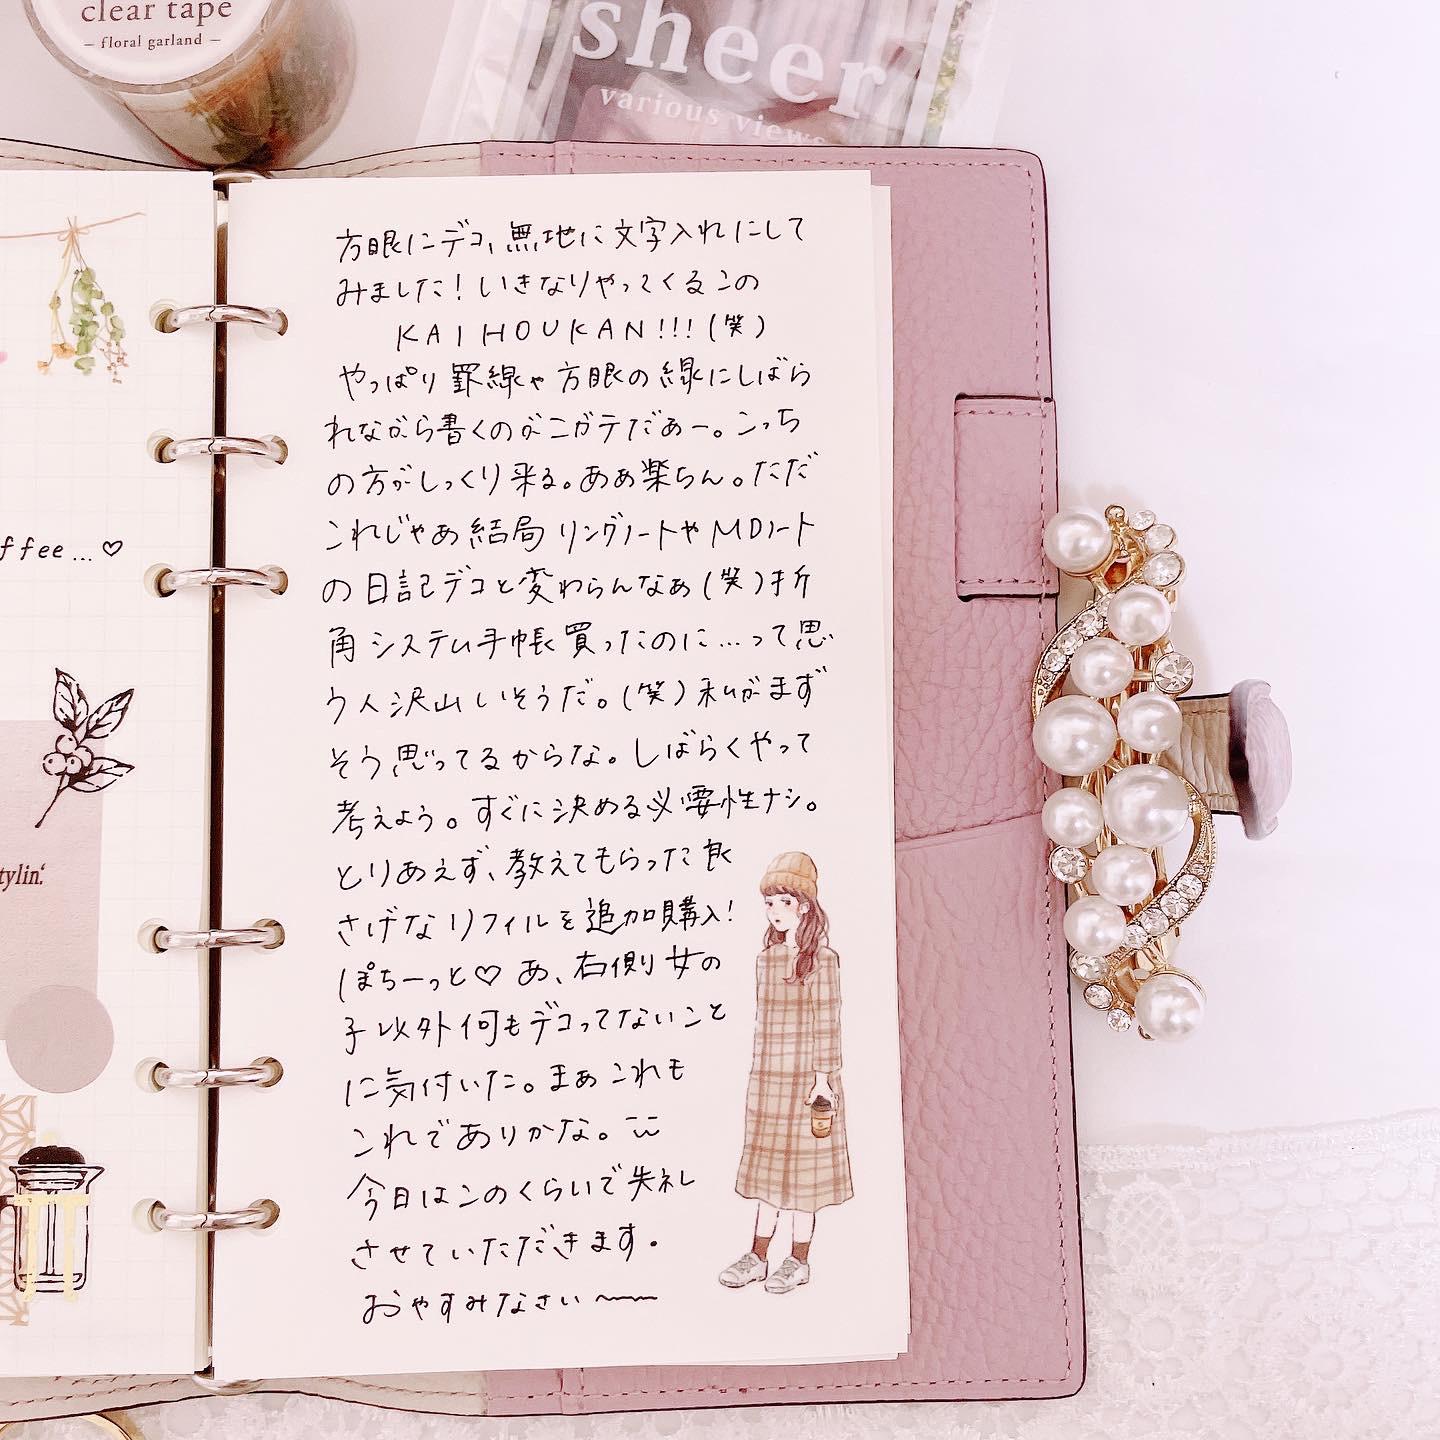 clear tape
– floral garland –
sheer
various views
ffee...♡
tylin'.
方眼にデコ、無地に文字入れにして
みました！いきなりやってくるこの
KAIHOUKAN!!!(笑)
やっぱり罫線や方眼の線にしばら
れながら書くのがニガテだぁー。こっち
の方がしっくり来る。あぁ楽ちん。ただ
これじゃあ結局リングノートやMDノート
の日記デコと変わらんなぁ(笑)折
角システム手帳買ったのに…って思
う人沢山いそうだ。(笑)私がまず
そう思ってるからな。しばらくやって
考えよう。すぐに決める必要性ナシ。
とりあえず、教えてもらった良
さげなリフィルを追加購入!
ぽちーっと♡あ、右側女の
子以外何もデコってないこと
に気付いた。まぁこれも
これでありかな。
今日はこのくらいで失礼し
させていただきます。
おやすみなさい〜〜